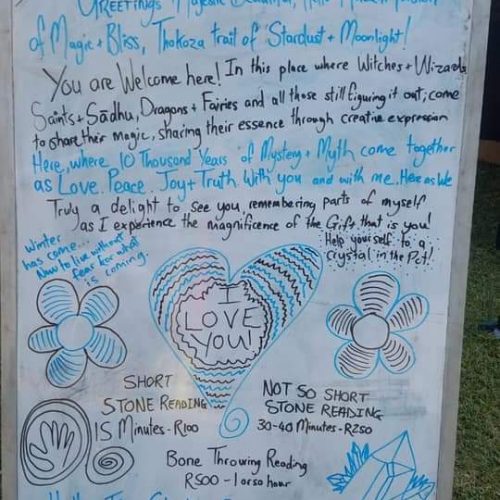 Greetings Majestic Beautiful
of Magic + Bliss, Thokoza trail of Stardust + Moonlight!
You are Welcome here! In this place where Witches + Wizards
Saints + Sādhu, Dragons + Fairies and all those still figuring it out, come
to share their magic, sharing their essence through creative expression
Here, where 10 Thousand Years of Mystery + Myth come together
as Love. Peace. Joy + Truth With you and with me. Here as We
Truly a delight to see you, remembering parts of myself
as I experience the magnificence of the Gift that is you!
Winter
has come...
Now to live without
fear for what
is coming.
Help yourself to a
crystal in the Pot!
I
LOVE
YOU!
SHORT
STONE READING
15 Minutes - R100
NOT SO SHORT
STONE READING
30-40 Minutes - R250
Bone Throwing Reading
R500 - 1 or so hour